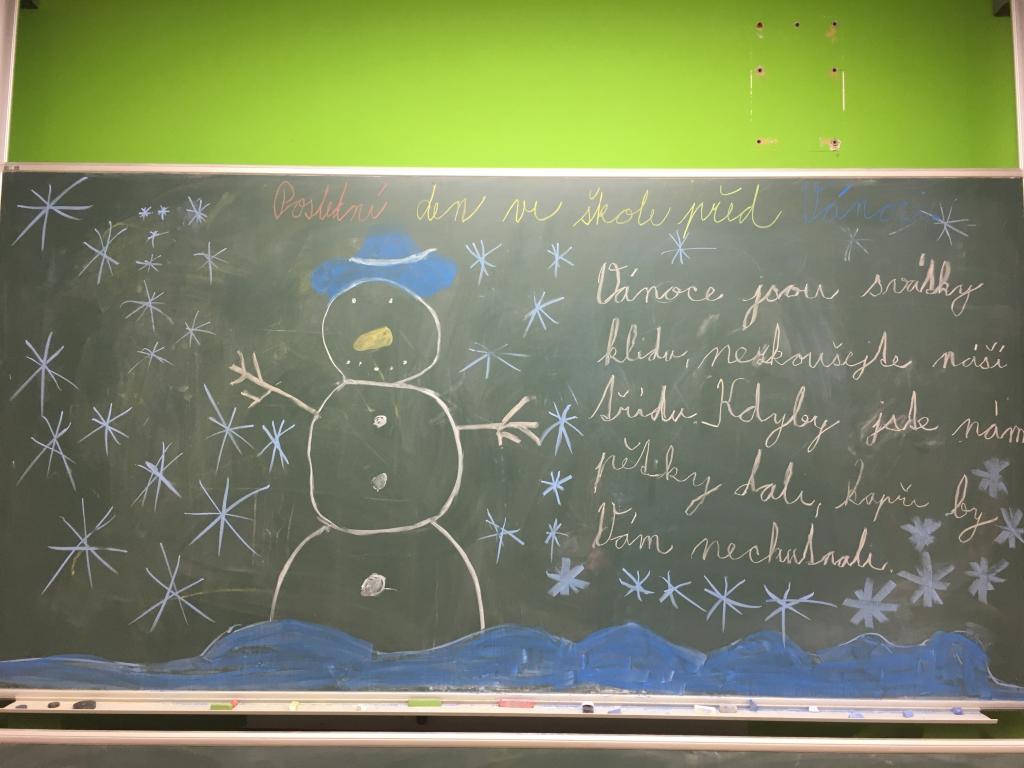 Poslední den ve škole před Vánoci
Vánoce jsou svátky
klidu, nezkoušejte náší
třídu. Kdyby jste nám
pětiky dali, kapři by
Vám nechutnali.